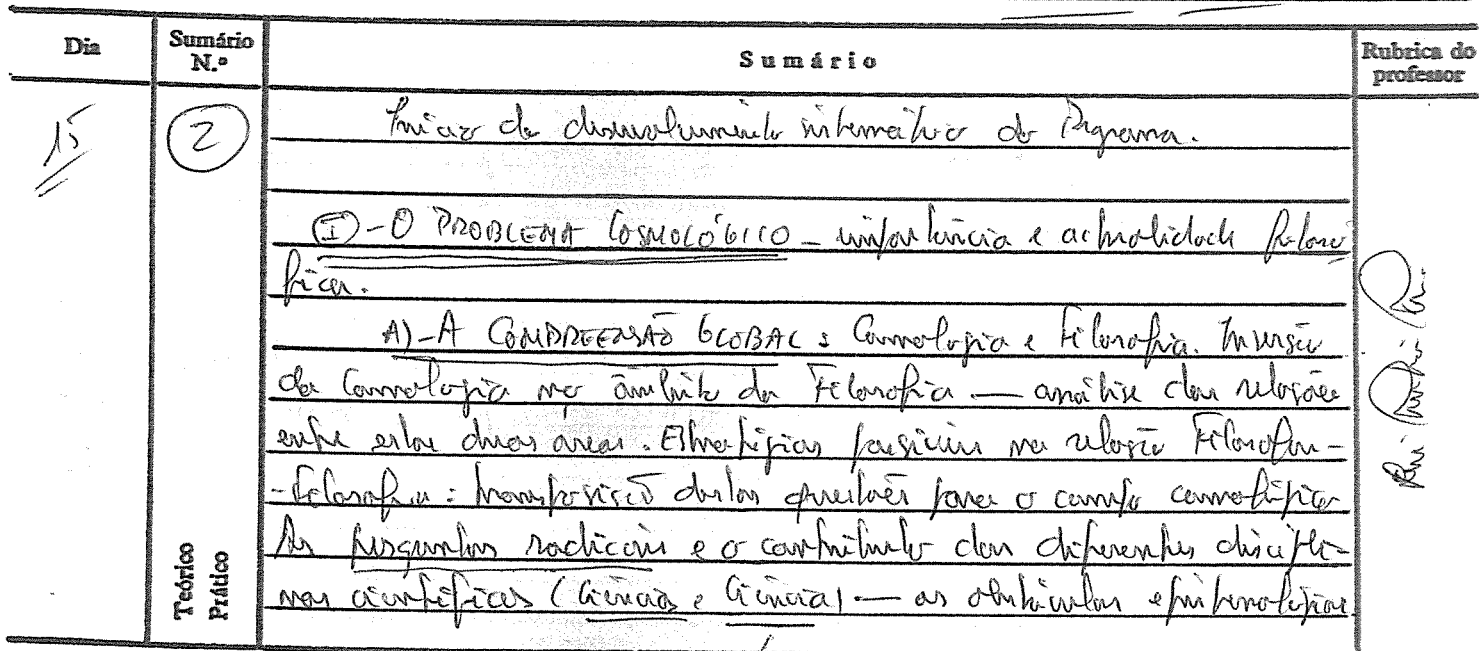 Dia
Sumário N.º
Sumário
Rubrica do professor
15
2
Início do desenvolvimento sistemático do Programa.
(I) - O PROBLEMA COSMOLÓGICO - importância e actualidade filosó
fica.
A) - A COMPREENSÃO GLOBAL: Cosmologia e Filosofia. Inserção
da Cosmologia no âmbito da Filosofia — análise das relações
entre estas duas áreas. Estratégias possíveis na relação Filosofia-
-Filosofia: transposição destas questões para o campo cosmológico
As perguntas radicais e o contributo das diferentes discipli-
nas científicas (Ciências e Ciência) — os obstáculos epistemológicos
Teórico
Prático
Rui